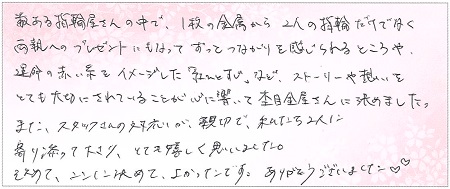 数ある指輪屋さんの中で、1枚の金属から2人の指輪だけでなく
両親へのプレゼントにもなってずっとつながりを感じられるところや、
運命の赤い糸をイメージした「紅ひとすじ」など、ストーリーや想いを
とても大切にされていることが心に響いて杢目金屋さんに決めました。
また、スタッフさんの対応が、親切で、私たち2人に
寄り添って下さり、とても嬉しく思いました。
初めて、ここに決めて、よかったです。ありがとうございました♡♡